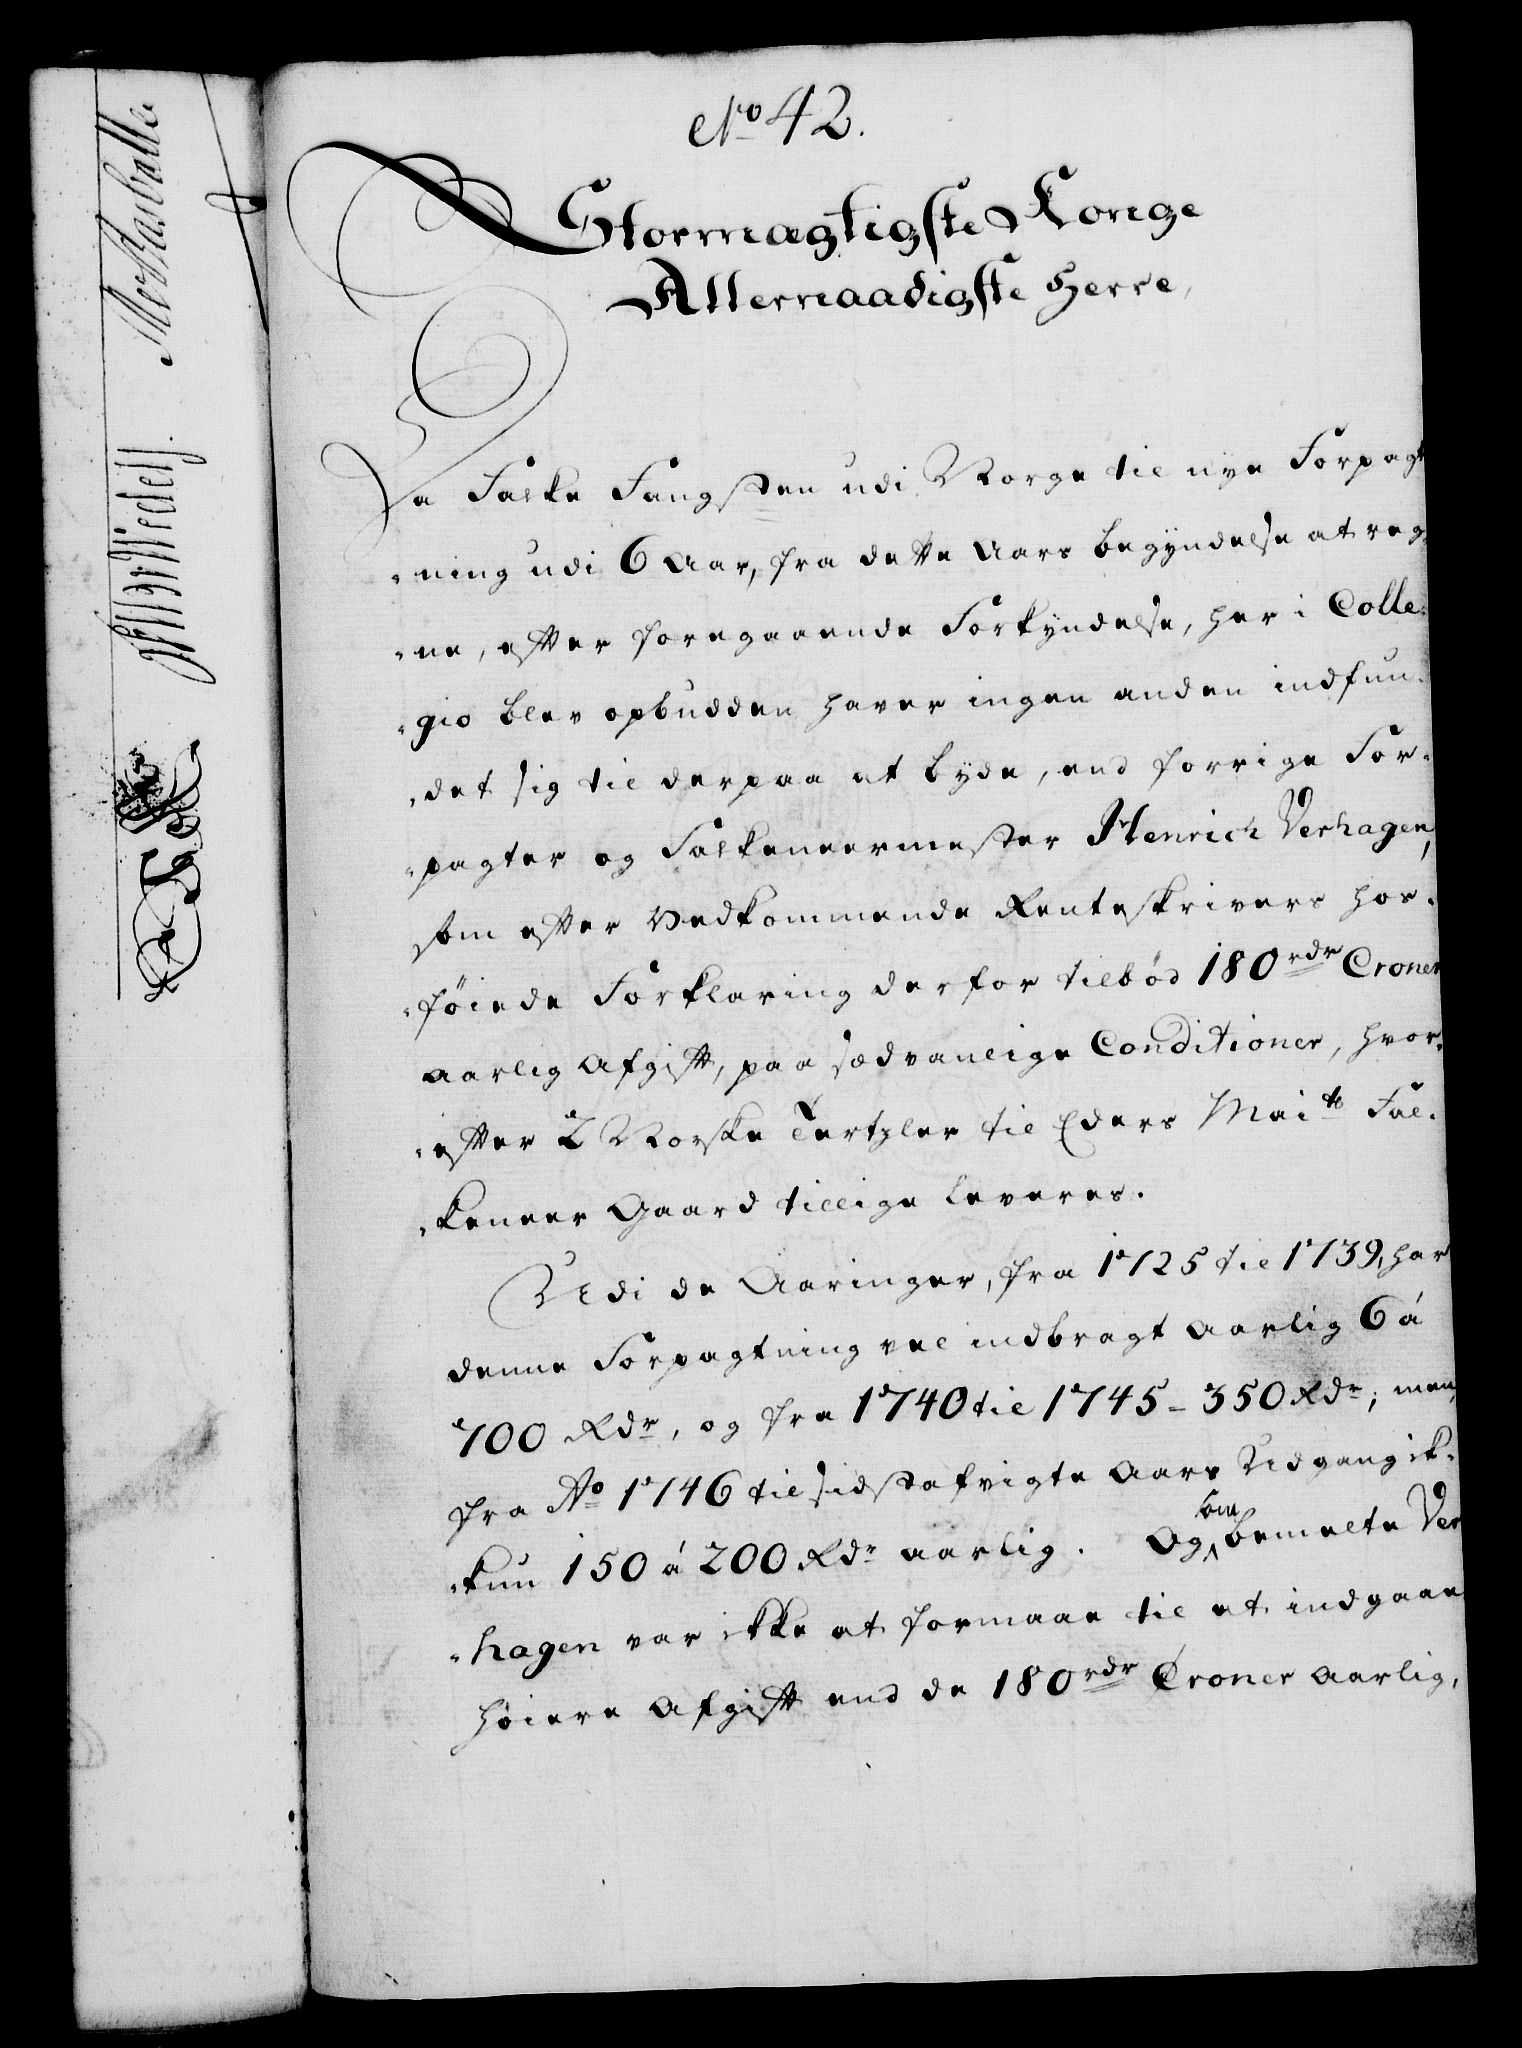 No 42.
Stormægtigste Konge
Allernaadigste Herre,
Da Falke Fangsten udi Norge til nye Forpagt
-ning udi 6 Aar, fra dette Aars begyndelse at reg-
-ne, efter foregaaende Forkyndelse, her i Colle-
-gio blev opbudden haver ingen anden indfun-
-det sig til derpaa at byde, end forrige For-
-pagter og Falkeneermester Henrich Verhagen,
som efter Vedkommende Renteskrivers hos-
-føiede Forklaring derfor tilbød 180 rdr Croner
aarlig Afgift, paa sædvanlige Conditioner, hvor-
-efter 2 Norske Tertzler til Eders Maits Fal-
-keneer Gaard tillige leveres.
Udi de Aaringer, fra 1725 til 1739, har
denne Forpagtning vel indbragt aarlig 6 á
700 Rdr, og fra 1740 til 1745 - 350 Rdr; men,
fra Ao 1746 til sidstafvigte Aars Udgang ik-
-kun 150 á 200 Rdr aarlig. Og som bemelte Ver
-hagen var ikke at formaae til at indgaae
høiere Afgift end de 180 rdr Croner aarlig,